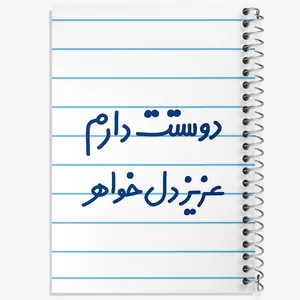 دوستت دارم
عزیز دل خواهر